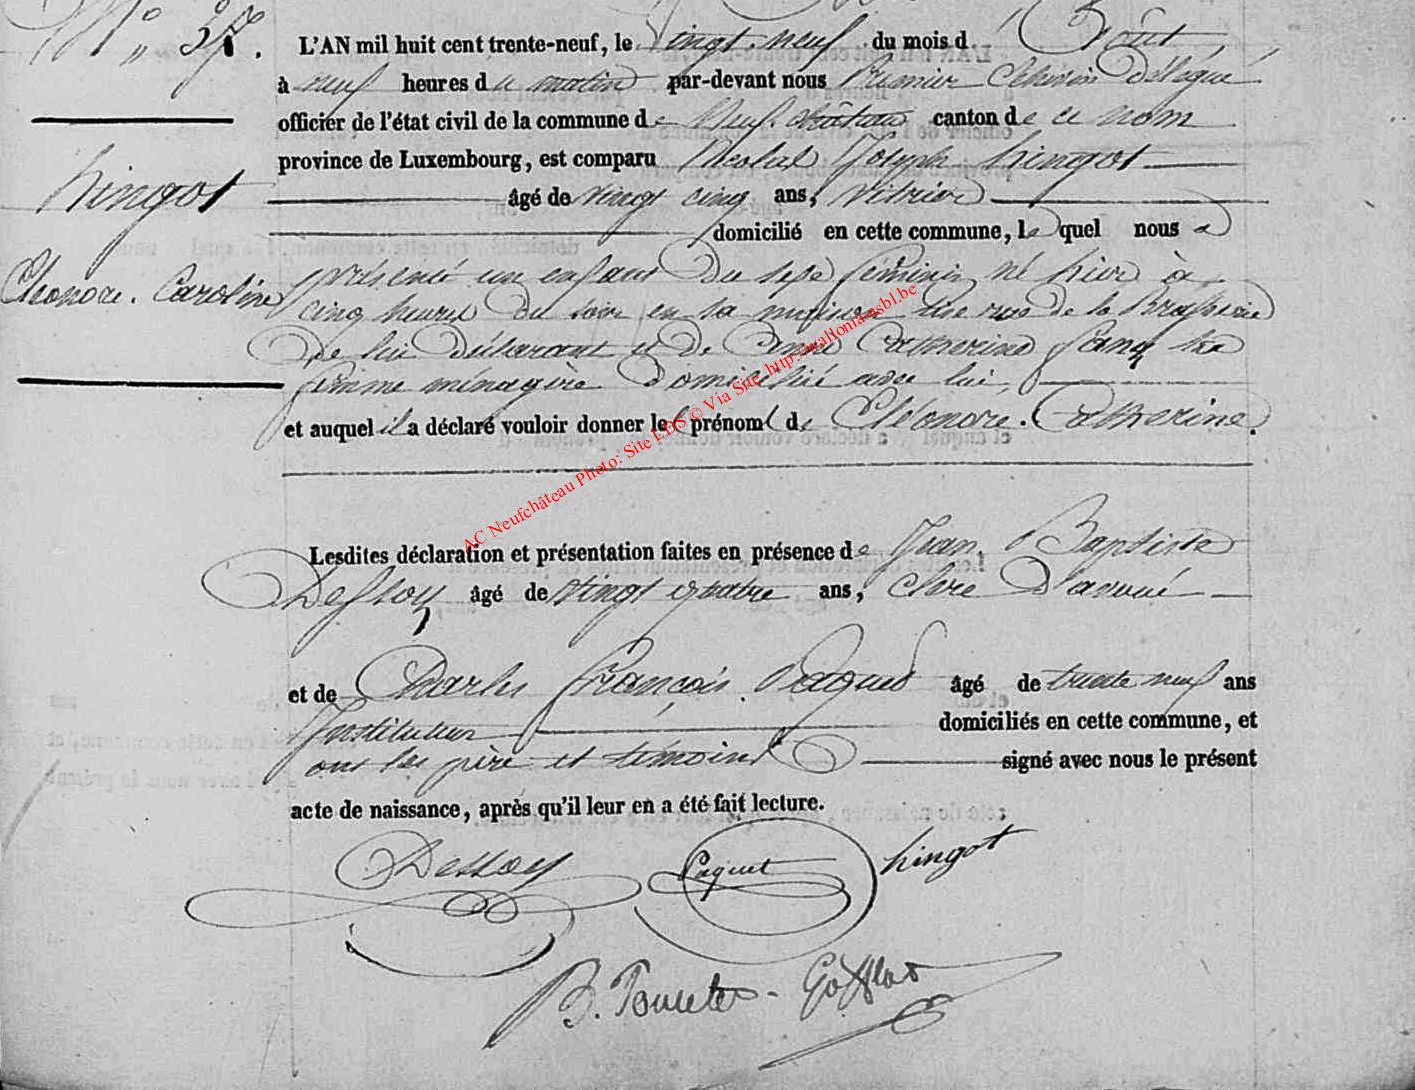 N° 37. L'AN mil huit cent trente-neuf, le Vingt-neuf du mois d'Août
à neuf heures du matin par-devant nous Premier Echevin Délégué
officier de l'état civil de la commune de Neufchâteau canton de ce nom
province de Luxembourg, est comparu Joseph hingot
hingot
âgé de vingt cinq ans, vitrier
domicilié en cette commune, lequel nous a
Eléonore. Caroline
présenté un enfant du sexe féminin né hier à
cinq heures du soir en sa maison sise rue de la Brasserie
de lui déclarant et de Anne Catherine
femme ménagère domiciliée avec lui
et auquel il a déclaré vouloir donner les prénoms de Eléonore. Catherine.
Lesdites déclaration et présentation faites en présence de Jean Baptiste
Dessoy âgé de vingt quatre ans, clerc d'avoué
et de Charles François Paquet âgé de trente neuf ans
Instituteur domiciliés en cette commune, et
ont les père et témoins signé avec nous le présent
acte de naissance, après qu'il leur en a été fait lecture.
Dessoy Paquet hingot
AC Neufchâteau Photo: Site LDS © Via Site http://wallonia-asbl.be